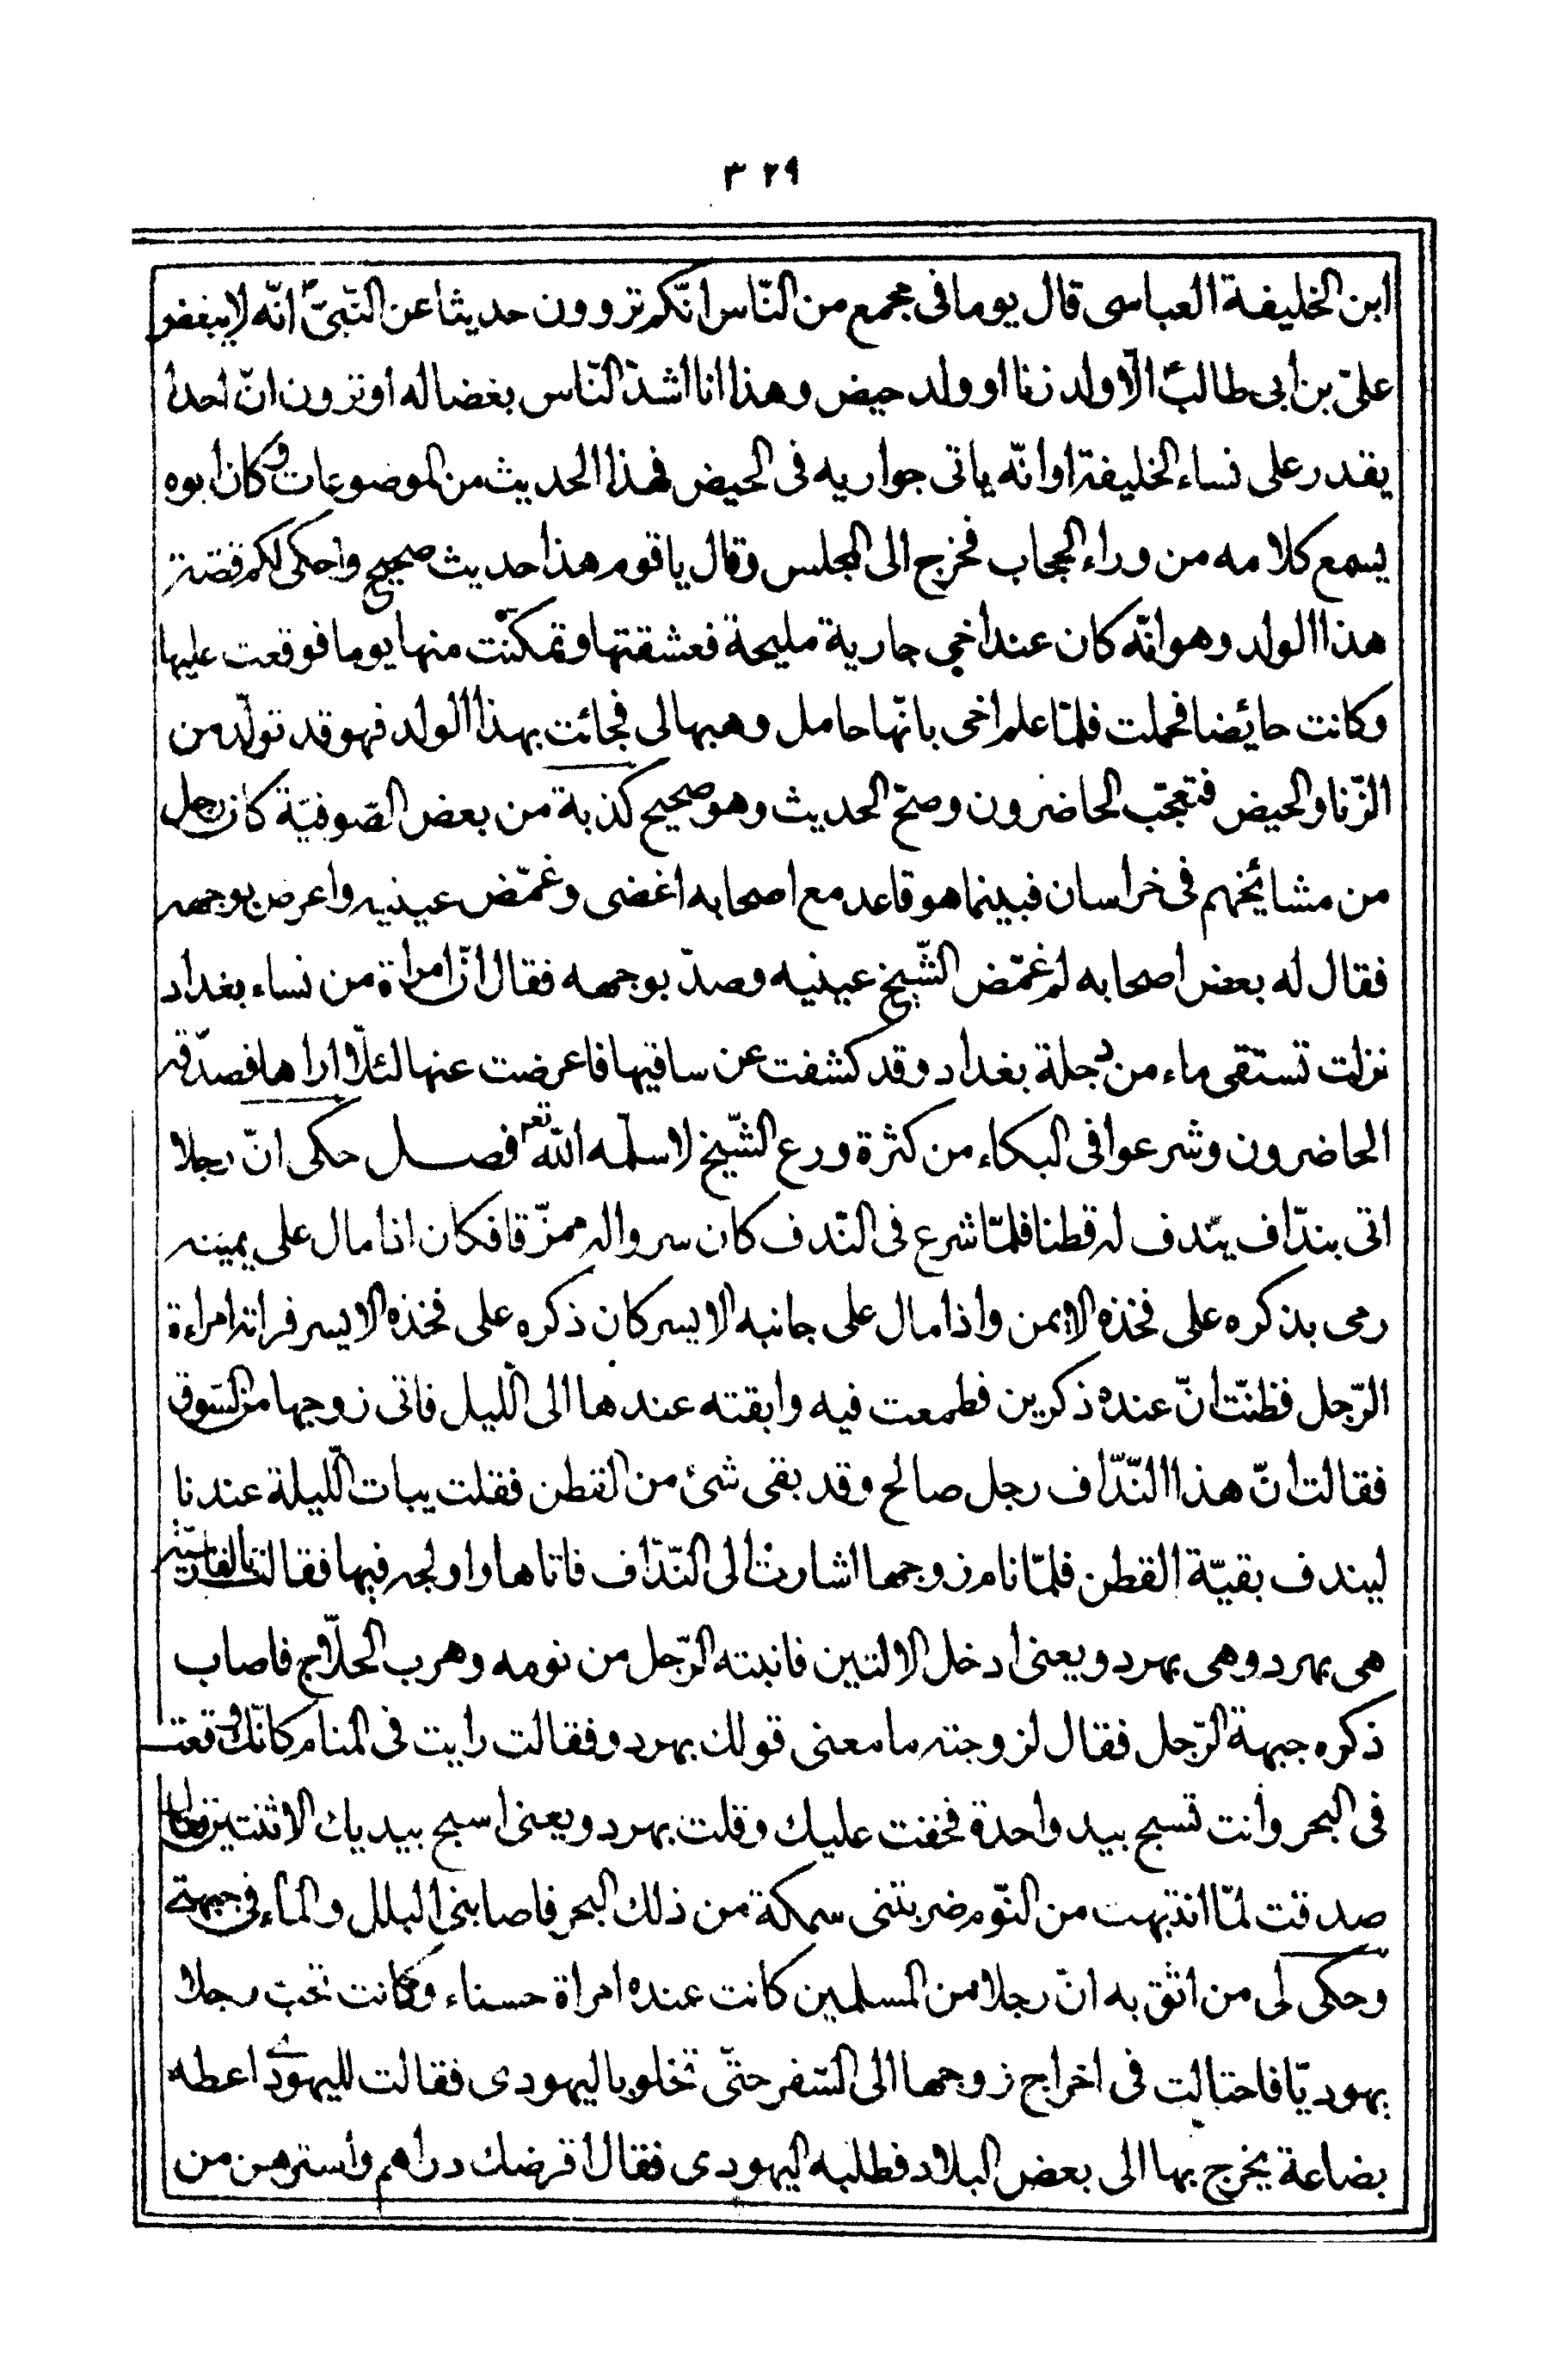 ٣٢٩
ابن الخليفة العباسى قال يوما فى مجمع من النّاس انّكم تروون حديثا عن النّبىّ انّه لا يبغض
علىّ بن ابى طالب الّا ولد زنا او ولد حيض وهذا انا اشدّ النّاس بغضا له اوترون انّ احدا
يقدر على نساء الخليفة اوانّه ياتى جواريه فى الحيض فهذا الحديث من الموضوعات وكان ابوه
يسمع كلامه من وراء الحجاب فخرج الى المجلس وقال يا قوم هذا حديث صحيح واحكى لكم قصّة
هذا الولد وهو انّه كان عند اخى جارية مليحة فعشقتها وتمكنّت منها يوما فوقعت عليها
وكانت حائضا فحملت فلمّا علم اخى بانّها حامل وهبها لى فجائت بهذا الولد فهو قد تولّد من
الزّنا والحيض فتعجّب الحاضرون وصحّ الحديث وهو صحيح كذبة من بعض الصّوفيّة كان رجل
من مشائخهم فى خراسان فبينما هو قاعد مع اصحابه اغضى وغمّض عينيه واعرض بوجهه
فقال له بعض اصحابه لم غمّض الشّيخ عينيه وصدّ بوجهه فقال انّ امراة من نساء بغداد
نزلت تستقى ماء من دجلة بغداد وقد كشفت عن ساقيها فاعرضت عنها لئلّا اراها فصدّقه
الحاضرون وشرعوا فى البكاء من كثرة ورع الشّيخ لا سلّمه اللّه تعم فصل حكى انّ رجلا
اتى بندّاف يندف له قطنا فلمّا شرع فى النّدف كان سرواله ممزّقا فكان اذا مال على يمينه
رمى بذكره على فخذه الايمن واذا مال على جانبه الايسر كان ذكره على فخذه الايسر فراته امراءة
الرّجل فظنّت انّ عنده ذكرين فطمعت فيه وابقته عندها الى اللّيل فاتى زوجها من السّوق
فقالت انّ هذا النّدّاف رجل صالح وقد بقى شئ من القطن فقلت يبات اللّيلة عندنا
ليندف بقيّة القطن فلمّا نام زوجها اشارت الى النّدّاف فاتاها واولجه فيها فقالت بالفارسيّة
هى بهرد وهى بهرد ويعنى ادخل الالتين فانبته الرّجل من نومه وهرب الحلّاج فاصاب
ذكره جبهة الرّجل فقال لزوجته ما معنى قولك بهردو فقالت رايت فى المنام كانّك وقعت
فى البحر وانت تسبح بيد واحدة فخفت عليك وقلت بهردو يعنى اسبح بيديك الاثنتين فقال
صدقت لمّا انتبهت من النّوم ضربتنى سمكة من ذلك البحر فاصابنى البلل والماء فى جبهتى
وحكى لى من اثق به انّ رجلا من المسلمين كانت عنده امراة حسناء وكانت تحب رجلا
يهوديّا فاحتالت فى اخراج زوجها الى السّفر حتّى تخلو باليهودى فقالت لليهودى اعطه
بضاعة يخرج بها الى بعض البلاد فطلبه اليهودى فقال اقرضك دراهم واسترهن من